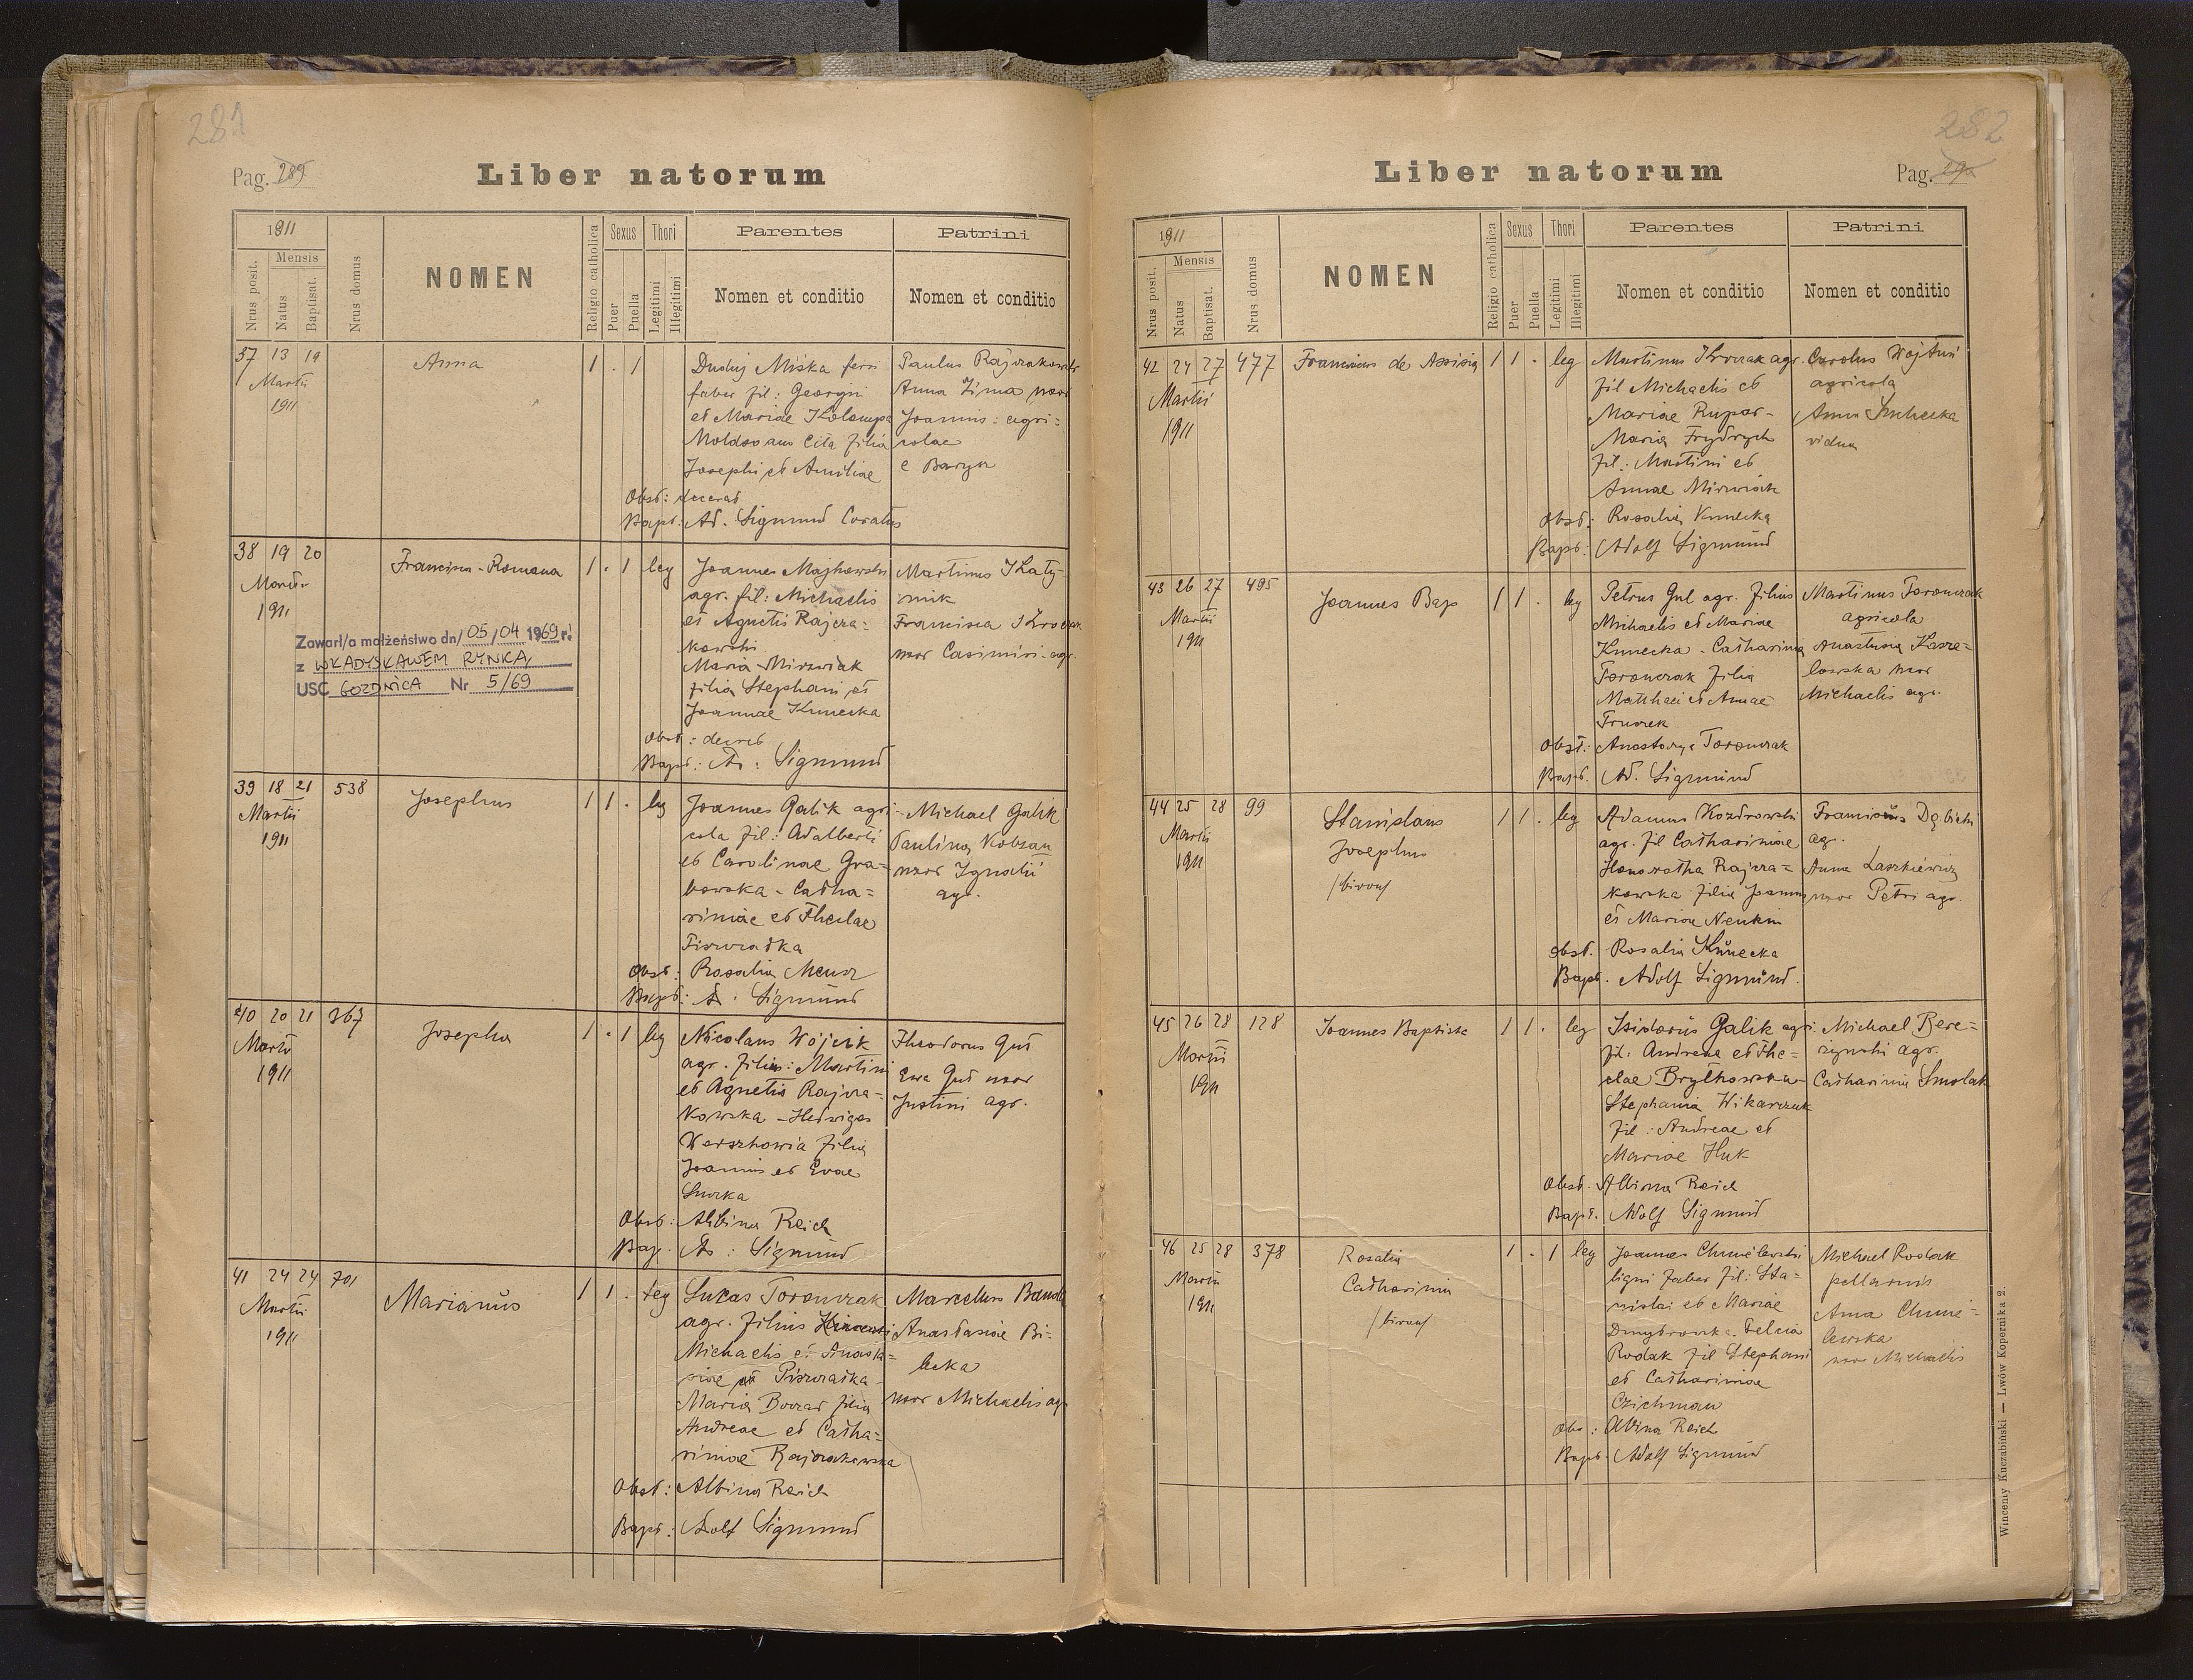 281
Pag. 289
Liber natorum
1911
Nrus posit.
Mensis
Natus
Baptisat.
Nrus domus
NOMEN
Religio catholica
Sexus
Puer
Puella
Thori
Legitimi
Illegitimi
Parentes
Nomen et conditio
Patrini
Nomen et conditio
37 13 19
Martii
1911
Anna
1 . 1
Dudij Miska ferri
faber fil: Georgii
et Mariae Kolompa
Moldovan Cita filia
Josephi et Amiliae
Paulus Rajzakowski
Anna Zima uxor
Joannis: agri:
colae
e Barysz
Obst: deerat
Bapt: Ad. Sigmund Coratus
38 19 20
Martii
1911
Francisca-Romana
1 . 1 leg
Joannes Majkowski
agr. fil: Michaelis
et Agnetis Rajcza=
kowski
Maria Mirzwiak
filia Stephani et
Joannae Kunecka
Martinus Klaty-
nik
Francisca Kroczak
uxor Casimiri agr.
Zawarł/a małżeństwo dn/ 05/04 1969 r!
z WŁADYSŁAWEM RYNKĄ
USC GOZDNICA Nr 5/69
Obst: deerat
Bapt: Ad: Sigmund
39 18 21 538
Martii
1911
Josephus
1 1 . leg
Joannes Galik agri-
cola fil: Adalberti
et Carolinae Gra=
bowska - Catha=
rinae et Theclae
Piszczatka
Michael Galik
Paulina Kobzan
uxor Ignatii
agr.
Obst: Rosalia Mensz
Bapt: A. Sigmund
40 20 21 367
Martii
1911
Josepha
1 . 1 leg
Nicolaus Wójcik
agr. filius: Martini
et Agnetis Rajcza=
kowska - Hedwigas
Werszkowia filia
Joannis et Evae
Theodorus Gut
Ewa Gut uxor
Justini agr.
Obst: Albina Reich
Bap. Ad: Sigmund
41 24 24 701
Martii
1911
Marianus
1 1 . leg
Lucas Toronczak
agr. filius
Michaelis et Anasta=
siae Piszczatka
Maria Boczar filia
Andreae et Catha=
rinae Rajczakowska
Marcelus Banda
Anastasiae Bi=
lecka
uxor Michaelis agr
Obst: Albina Reich
Bapt: Adolf Sigmund
282
Liber natorum
Pag. 290
1911
Nrus posit.
Mensis
Natus
Baptisat.
Nrus domus
NOMEN
Religio catholica
Sexus
Puer
Puella
Thori
Legitimi
Illegitimi
Parentes
Nomen et conditio
Patrini
Nomen et conditio
42 24 27 477
Martii
1911
Franciscus de Assisia
1 1 . leg
Martinus Kroczak agr.
fil Michaelis et
Mariae Rupar-
Maria Frydrych
fil: Martini et
Annae Mirzwiak
Carolus Wojtuń
agricola
Anna Suchecka
vidua
Obst: Rosalia Kunecka
Bapt: Adolf Sigmund
43 26 27 495
Martii
1911
Joannes Bap
1 1 . leg
Petrus Gul agr. filius
Michaelis et Mariae
Kunecka - Catharina
Toronczak filia
Matthaei et Annae
Martinus Toronczak
agricola
Anastasia Kosze=
lowska uxor
Michaelis agr.
Obst: Anastazya Toronczak
Bapt. Ad. Sigmund
44 25 28 99
Martii
1911
Stanislaus
Josephus
1 1 . leg
Adamus Kozdrowski
agr. fil Catharinae
Honoratha Rajcza=
kowska filia Joannis
et Mariae Neukim
Franciscus Dębicki
agr.
Anna Laszkiewicz
uxor Petri agr.
Obst. Rosalia Kunecka
Bapt. Adolf Sigmund.
45 26 28 128
Martii
1911
Joannes Baptista
1 1 . leg
Isidorus Galik agri.
fil: Andreae et The=
clae Brylkowska-
Stephania Wikarczuk
fil: Andreae et
Mariae Huk
Michael Bere=
zynski agr.
Catharina Smolak
Obst. Albina Reich
Bapt. Adolf Sigmund
46 25 28 378
Martii
1911
Rosalia
Catharina
1 . 1 leg
Joannes Chmielewski
ligni faber fil: Sta=
nislai et Mariae
Felcia
Rodak fil Stephani
et Catharinae
Czichman
Michael Rodak
Anna Chmie-
lewska
uxor Michaelis
Obs: Albina Reich
Bapt. Adolf Sigmund
Wincenty Kuczabiński — Lwów Kopernika 2.